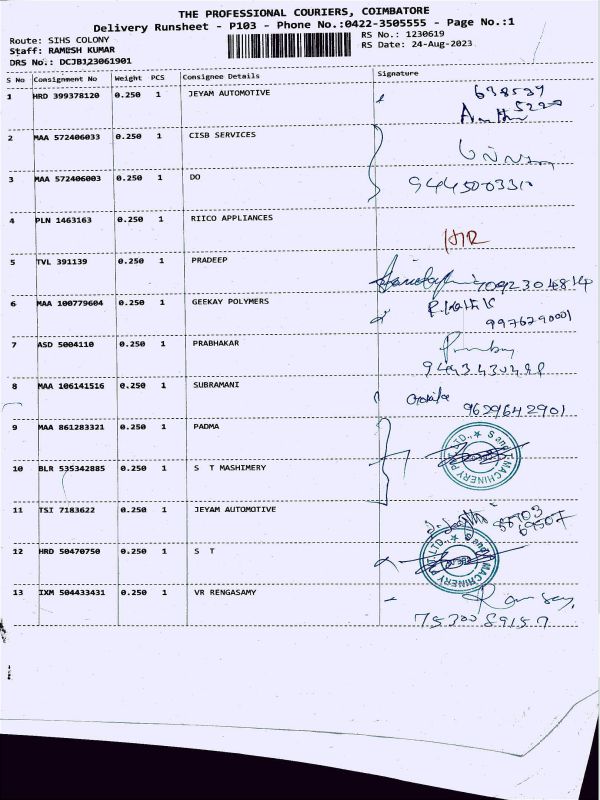 THE PROFESSIONAL COURIERS, COIMBATORE
Delivery Runsheet - P103 - Phone No.:0422-3505555 - Page No.:1
Route: SIHS COLONY RS No.: 1230619
Staff: RAMESH KUMAR RS Date: 24-Aug-2023
DRS No.: DCJB123061901
S No Consignment No Weight PCS Consignee Details Signature
1 HRD 399378120 0.250 1 JEYAM AUTOMOTIVE
2 MAA 572406033 0.250 1 CISB SERVICES
3 MAA 572406003 0.250 1 DO
4 PLN 1463163 0.250 1 RIICO APPLIANCES
5 TVL 391139 0.250 1 PRADEEP
7092304814
6 MAA 100779604 0.250 1 GEEKAY POLYMERS
9976290001
7 ASD 5004110 0.250 1 PRABHAKAR
8 MAA 106141516 0.250 1 SUBRAMANI
9629642901
9 MAA 861283321 0.250 1 PADMA
10 BLR 535342885 0.250 1 S T MASHIMERY
MACHINERY
11 TSI 7183622 0.250 1 JEYAM AUTOMOTIVE
12 HRD 50470750 0.250 1 S T
MACHINERY
13 IXM 504433431 0.250 1 VR RENGASAMY